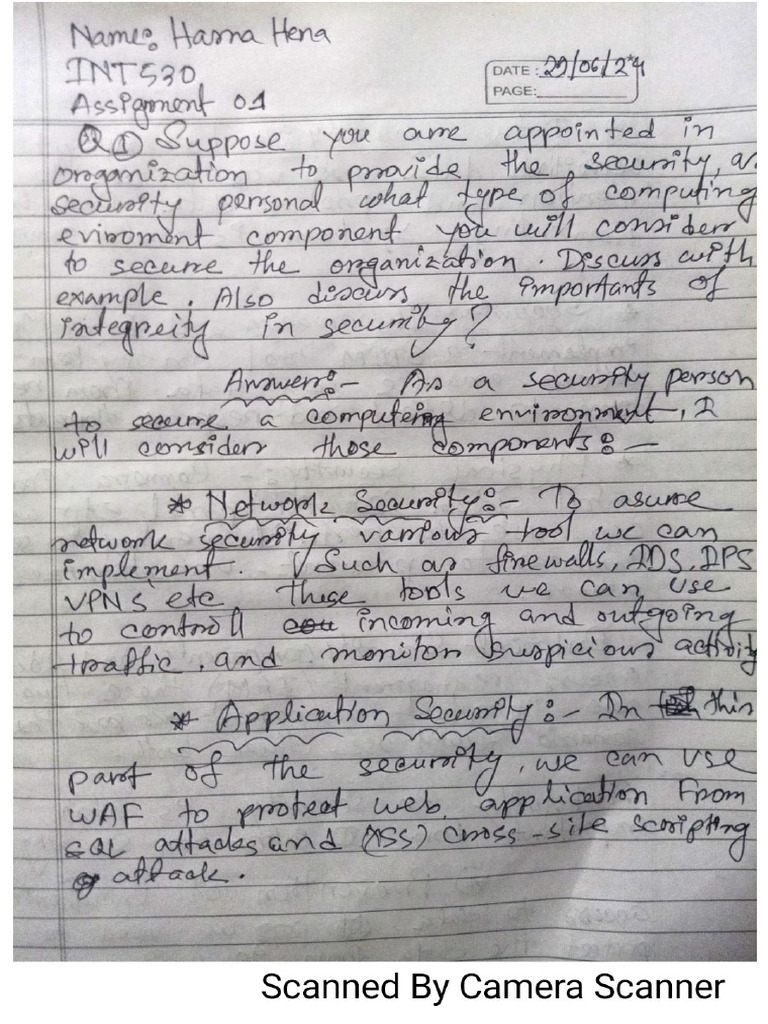 Name: Hasna Hena
INT530
Assignment 01
DATE: 29/06/24
PAGE:
Q ① Suppose you are appointed in
organization to provide the security, as
security personal what type of computing
eviroment component you will consider
to secure the organization. Discuss with
example. Also discuss the importants of
integreity in security?
Answer:- As a security person
to secure a computing environment, I
will consider those components:-
* Network Security:- To asume
network security various tool we can
implement. Such as firewalls, IDS, IPS
VPNs etc these tools we can use
to controll incoming and outgoing
traffic, and monitor suspicious activity
* Application Security:- In this
part of the security, we can use
WAF to protect web application from
SQL attacks and (XSS) cross-site scripting
attack.
Scanned By Camera Scanner